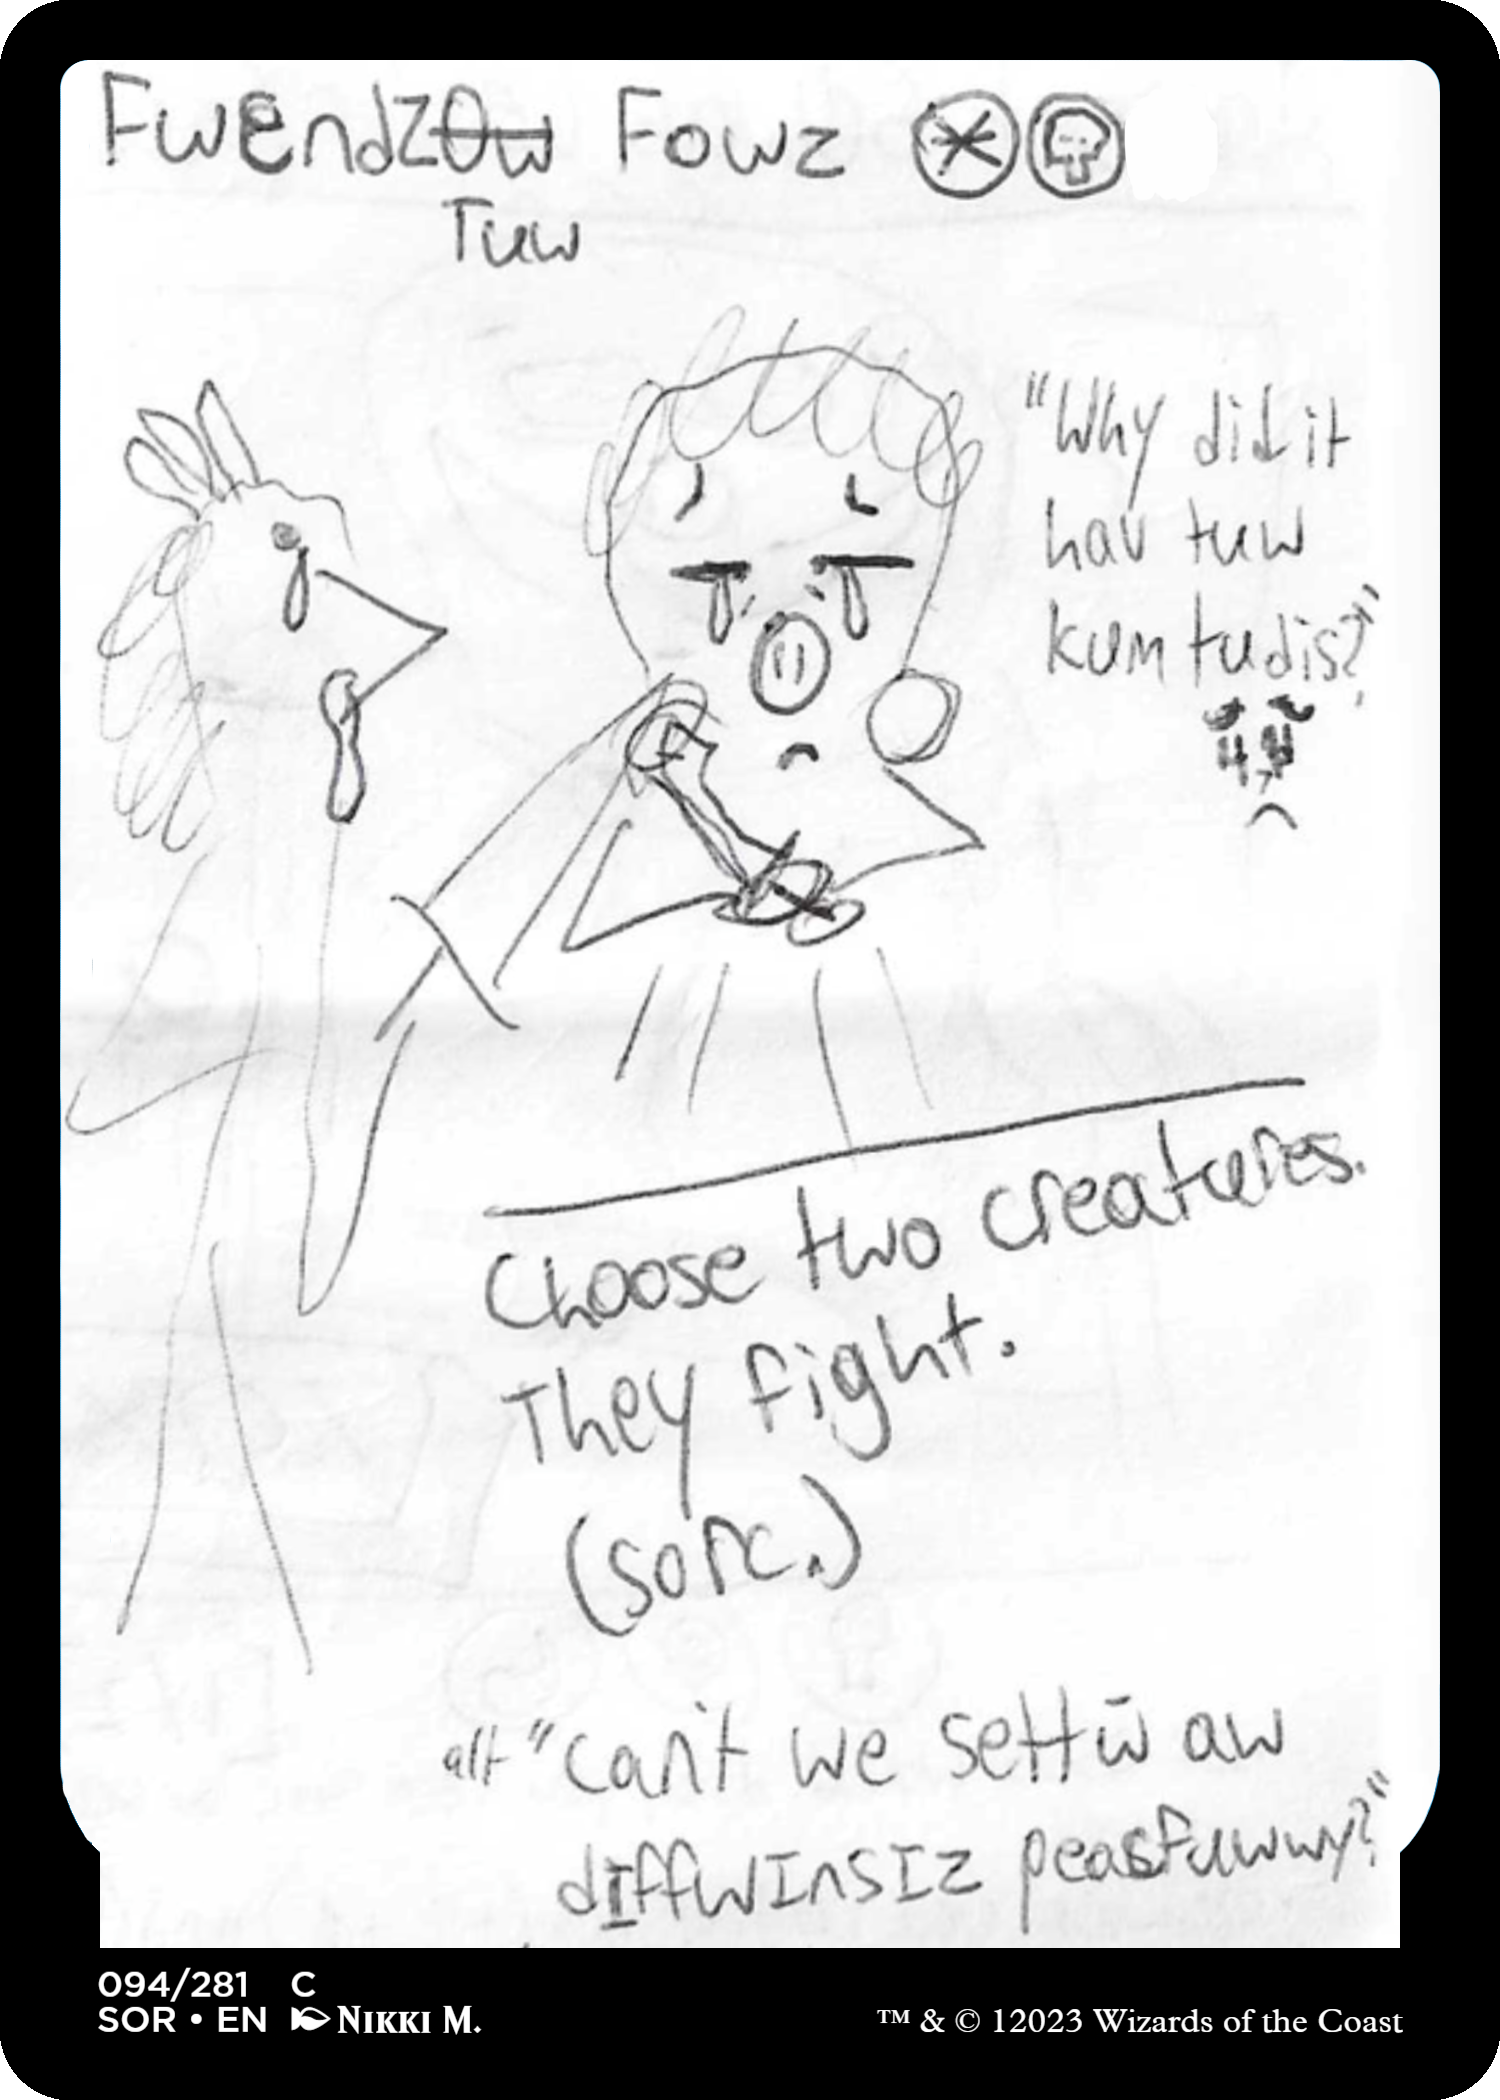 FwendzOw Fowz
Tuw
"Why did it
hav tuw
kum tu dis?"
Choose two creatures.
They fight.
(sorc.)
alt "can't we settw̄ aw
dIffwInsIz peasfuwwy?"
094/281 C
SOR • EN NIKKI M.
™ & © 12023 Wizards of the Coast